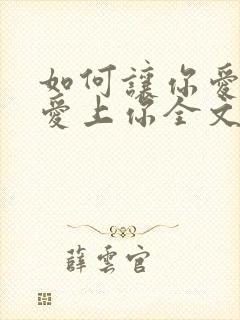 如何讓你愛
愛上你全文
薛雲官